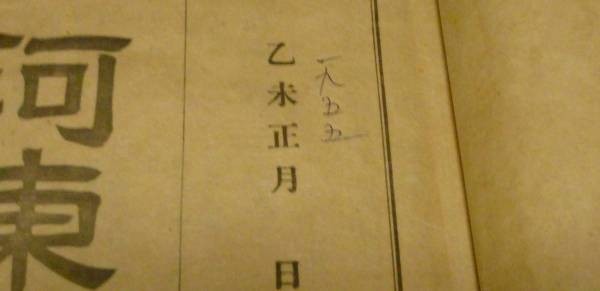 一九五五
乙未正月 日
河東